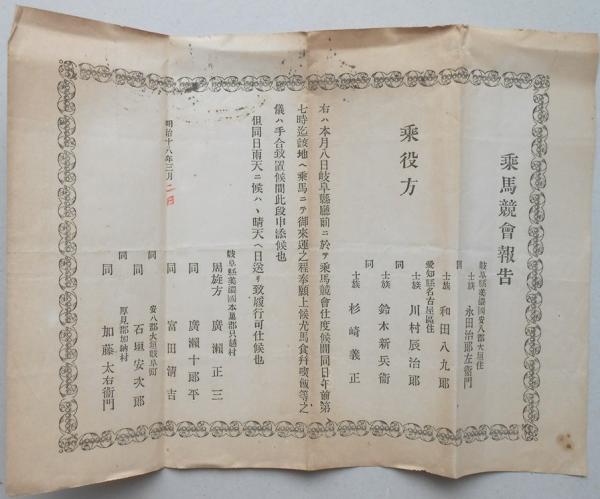 乘馬競會報告
岐阜縣美濃國安八郡大垣住
士族 永田治郎左衞門
同
士族 和田八九郎
愛知縣名古屋區住
士族 川村辰治郎
同
士族 鈴木新兵衞
同
士族 杉崎義正
乘役方
右ハ本月八日岐阜縣廳前ニ於ヲ乘馬競會仕度候間同日午前第
七時迄該地ヘ乘馬ニテ御來運之程奉願上候尤馬食幷喫飯等之
儀ハ手合致置候間此段申添候也
但同日雨天ニ候ハヽ晴天ヘ日送リ致履行可仕候也
明治十八年三月二日
岐阜縣美濃國本巢郡只越村
周旋方 廣瀨正三
同 廣瀨十郎平
同 富田淸吉
同 安八郡大垣岐阜町
同 石垣安次郎
同 厚見郡加納村
同 加藤太右衞門